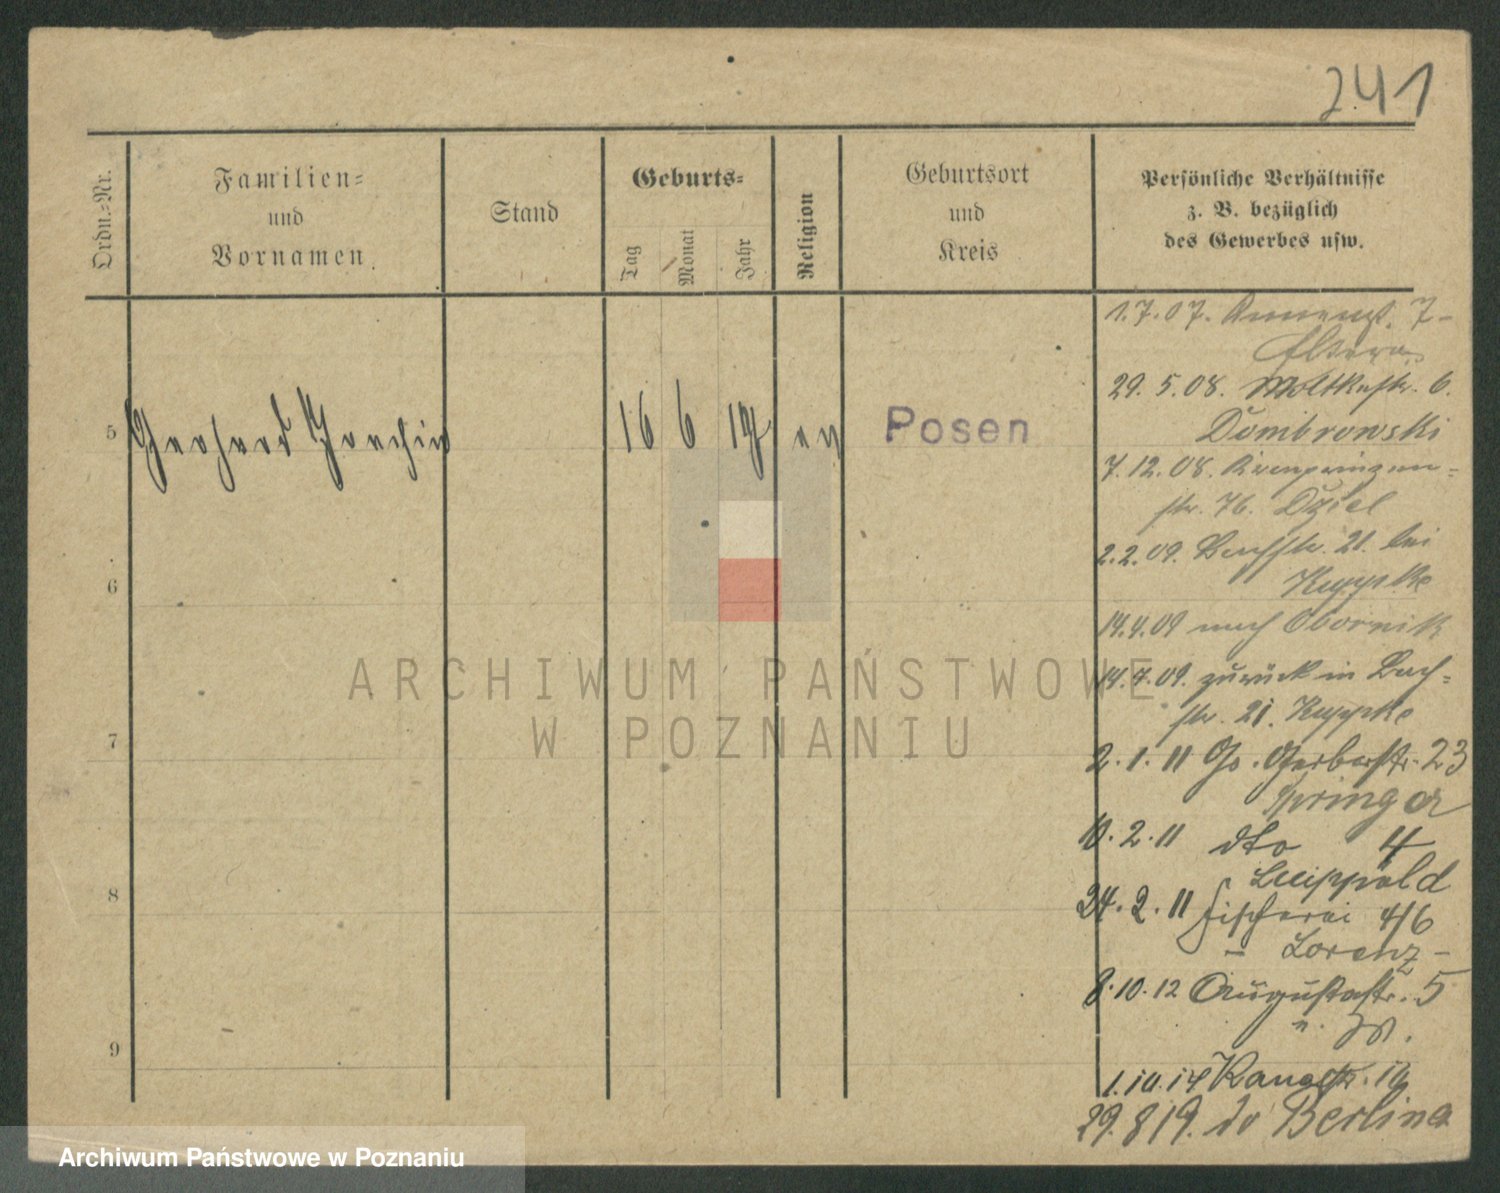 241
Ordn.-Nr.
Familien-
und
Vornamen
Stand
Geburts-
Tag
Monat
Jahr
Religion
Geburtsort
und
Kreis
Persönliche Verhältnisse
z. B. bezüglich
des Gewerbes usw.
5
Gerhard Joachim
16
6
ev
Posen
6
7
8
9
1.7.07. 7-
Eltern
29.5.08. Moltkestr. 6.
Dombrowski
7.12.08. Kronprinzen-
str. 76. Dziel
2.2.09. Bachstr. 21. bei
14.4.09 nach Obornik
zurück in Bach-
str. 21.
2.1.11 Gr. Gerberstr. 23
Springer
10.2.11 dto 4
Luippold
24.2.11 Fischerei 4/6
- Lorenz -
8.10.12 Augustastr. 5
1.10.14 10
29.8 19. do Berlina
ARCHIWUM PAŃSTWOWE
W POZNANIU
Archiwum Państwowe w Poznaniu